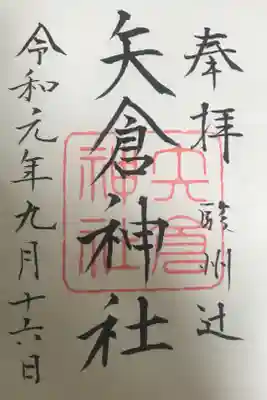 奉拝
駿州辻
矢倉神社
矢倉
神社
令和元年九月十六日